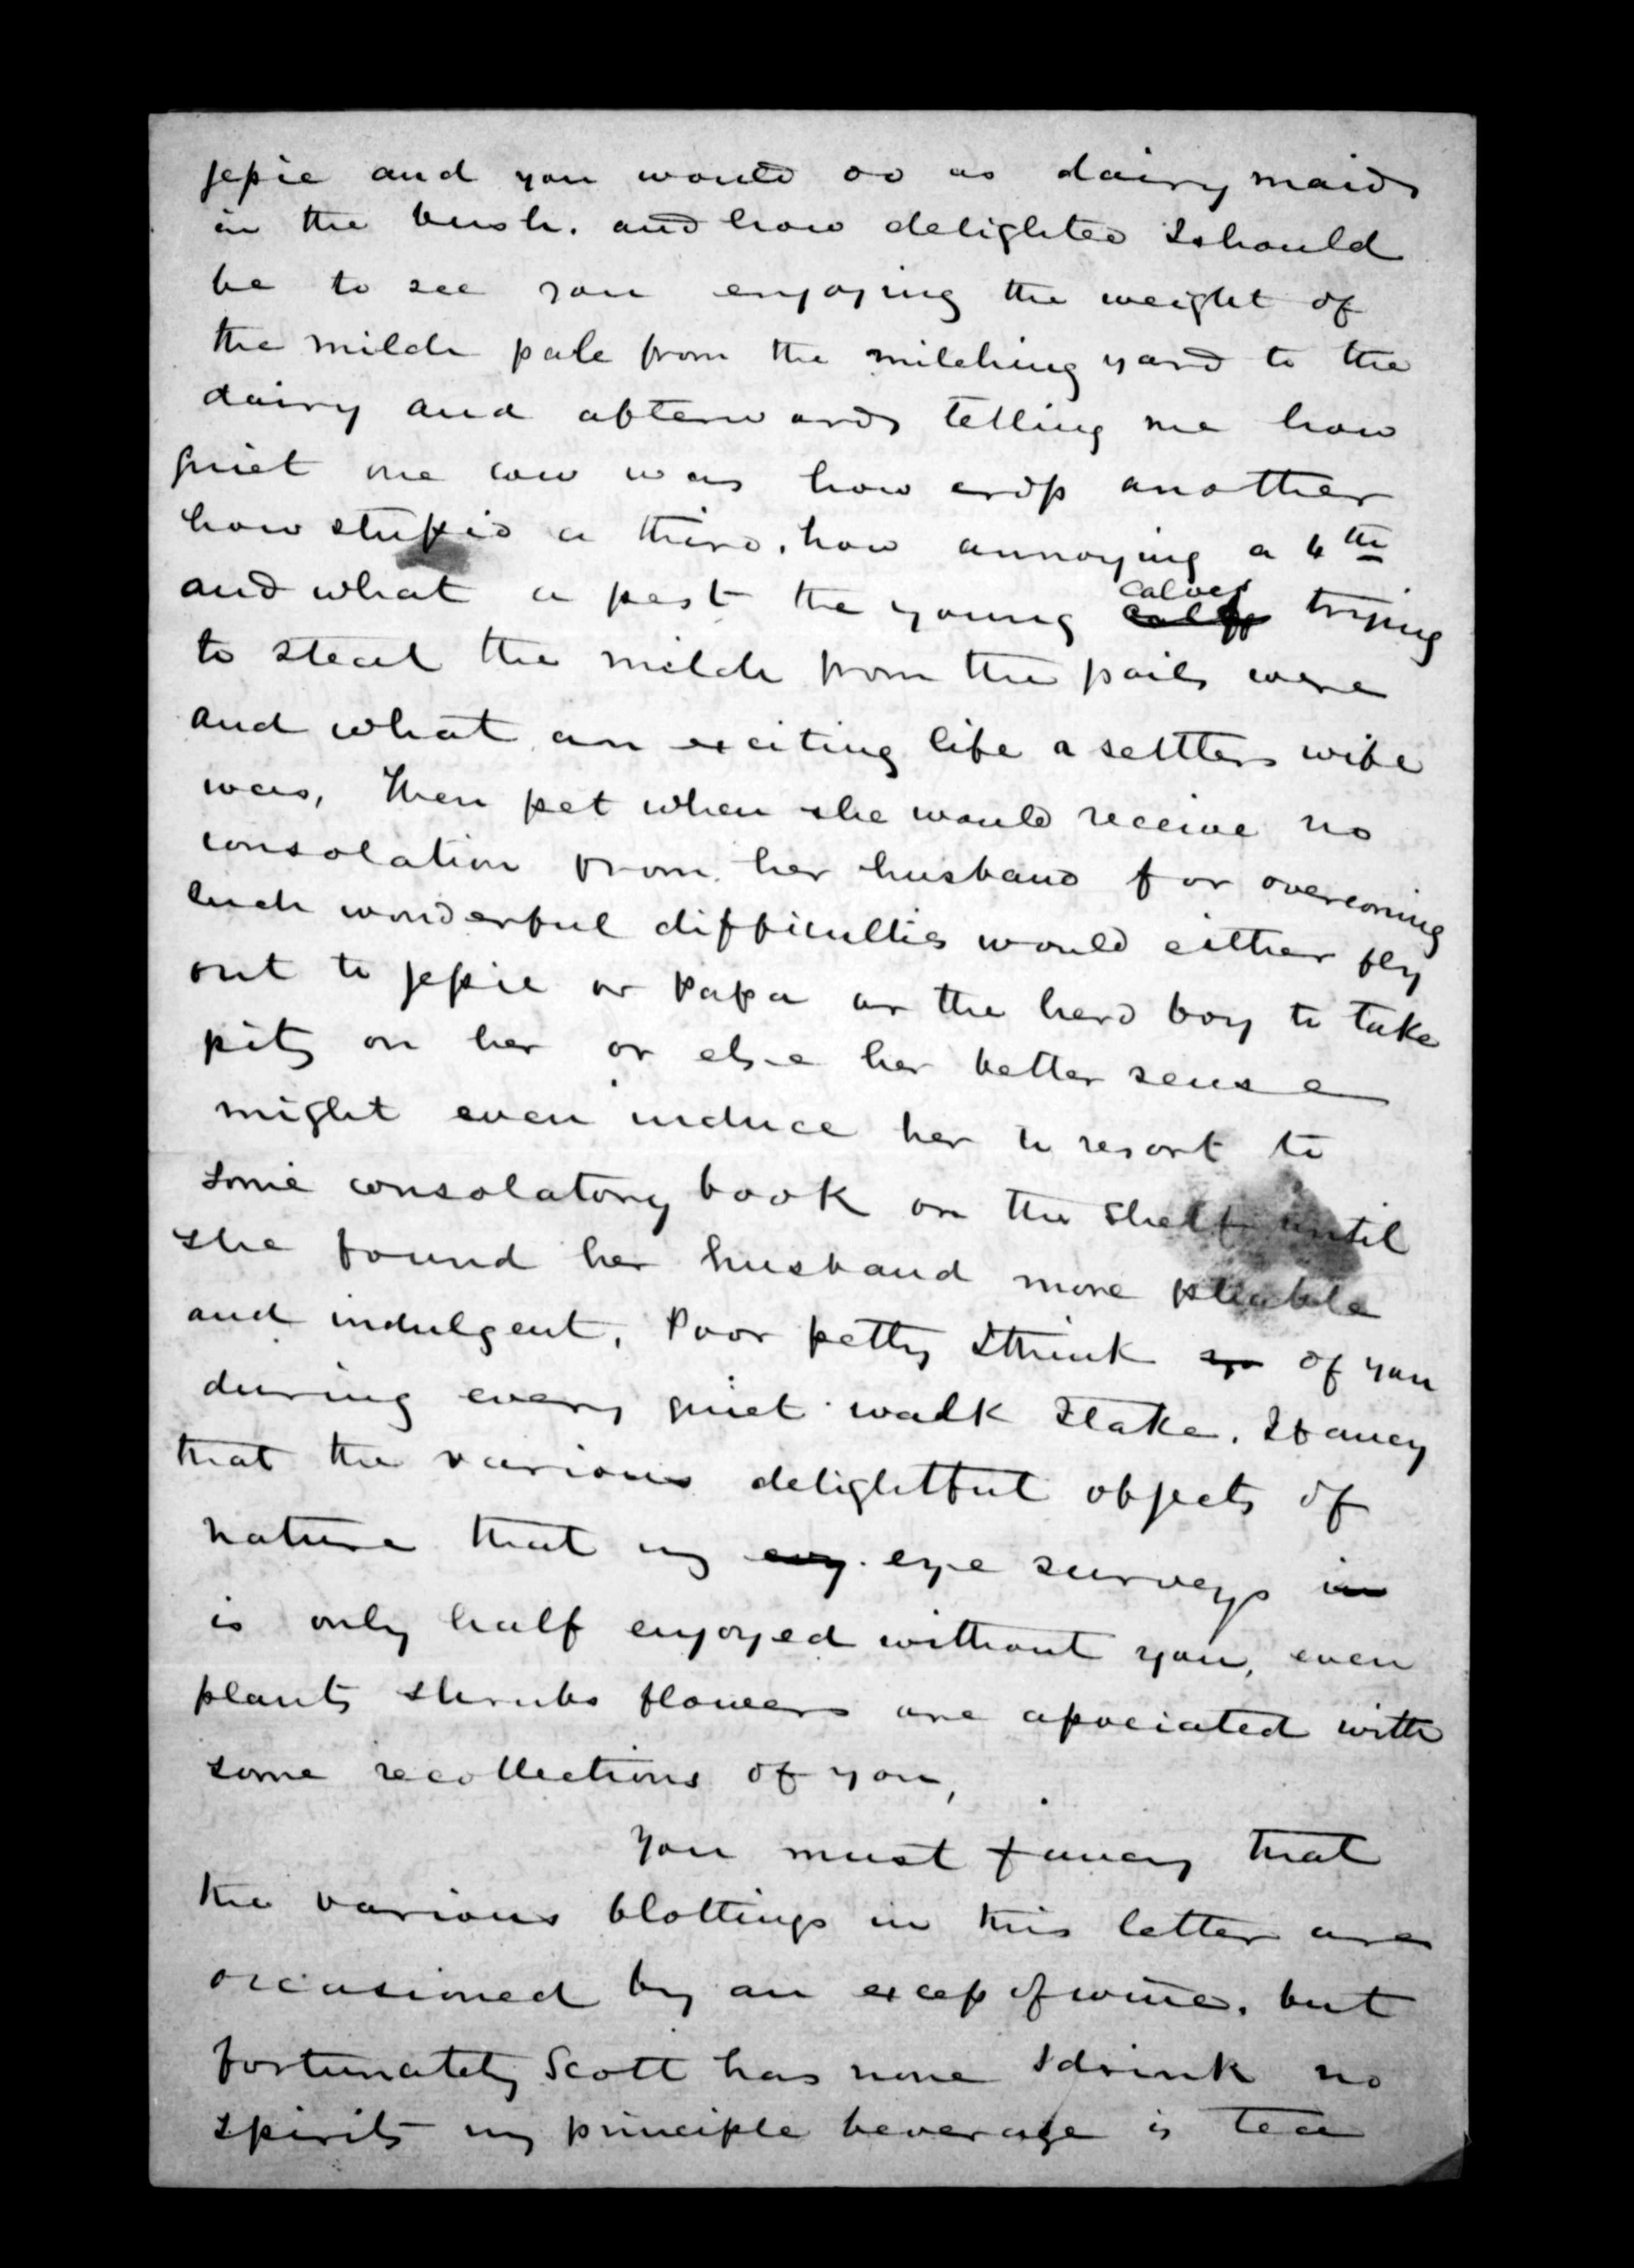 Jessie and you would do as dairy maids
in the bush. and how delighted I should
be to see you enjoying the weight of
the milch pale from the milching yard to the
dairy and afterwards telling me how
quiet one cow was how cross another
how stupid a third. how annoying a 4th
and what a pest the young calves trying
to steal the milch from the pails were
and what an exciting life a settlers wife
was, Then pet when she would receive no
consolation from her husband for overcoming
such wonderful difficulties would either fly
out to Jessie or Papa or the herd boy to take
pity on her or else her better sense
might even induce her to resort to
some consolatory book on the shelf until
she found her husband more pleable
and indulgent, Poor petty I think of you
during every quiet walk I take. I fancy
that the various delightful objects of
nature that my eye surveys
is only half enjoyed without you, even
plants shrubs flowers are associated with
some recollections of you,
You must fancy that
the various blottings in this letter are
occasioned by an excess of wine. but
fortunately Scott has none I drink no
spirits my principle beverage is tea